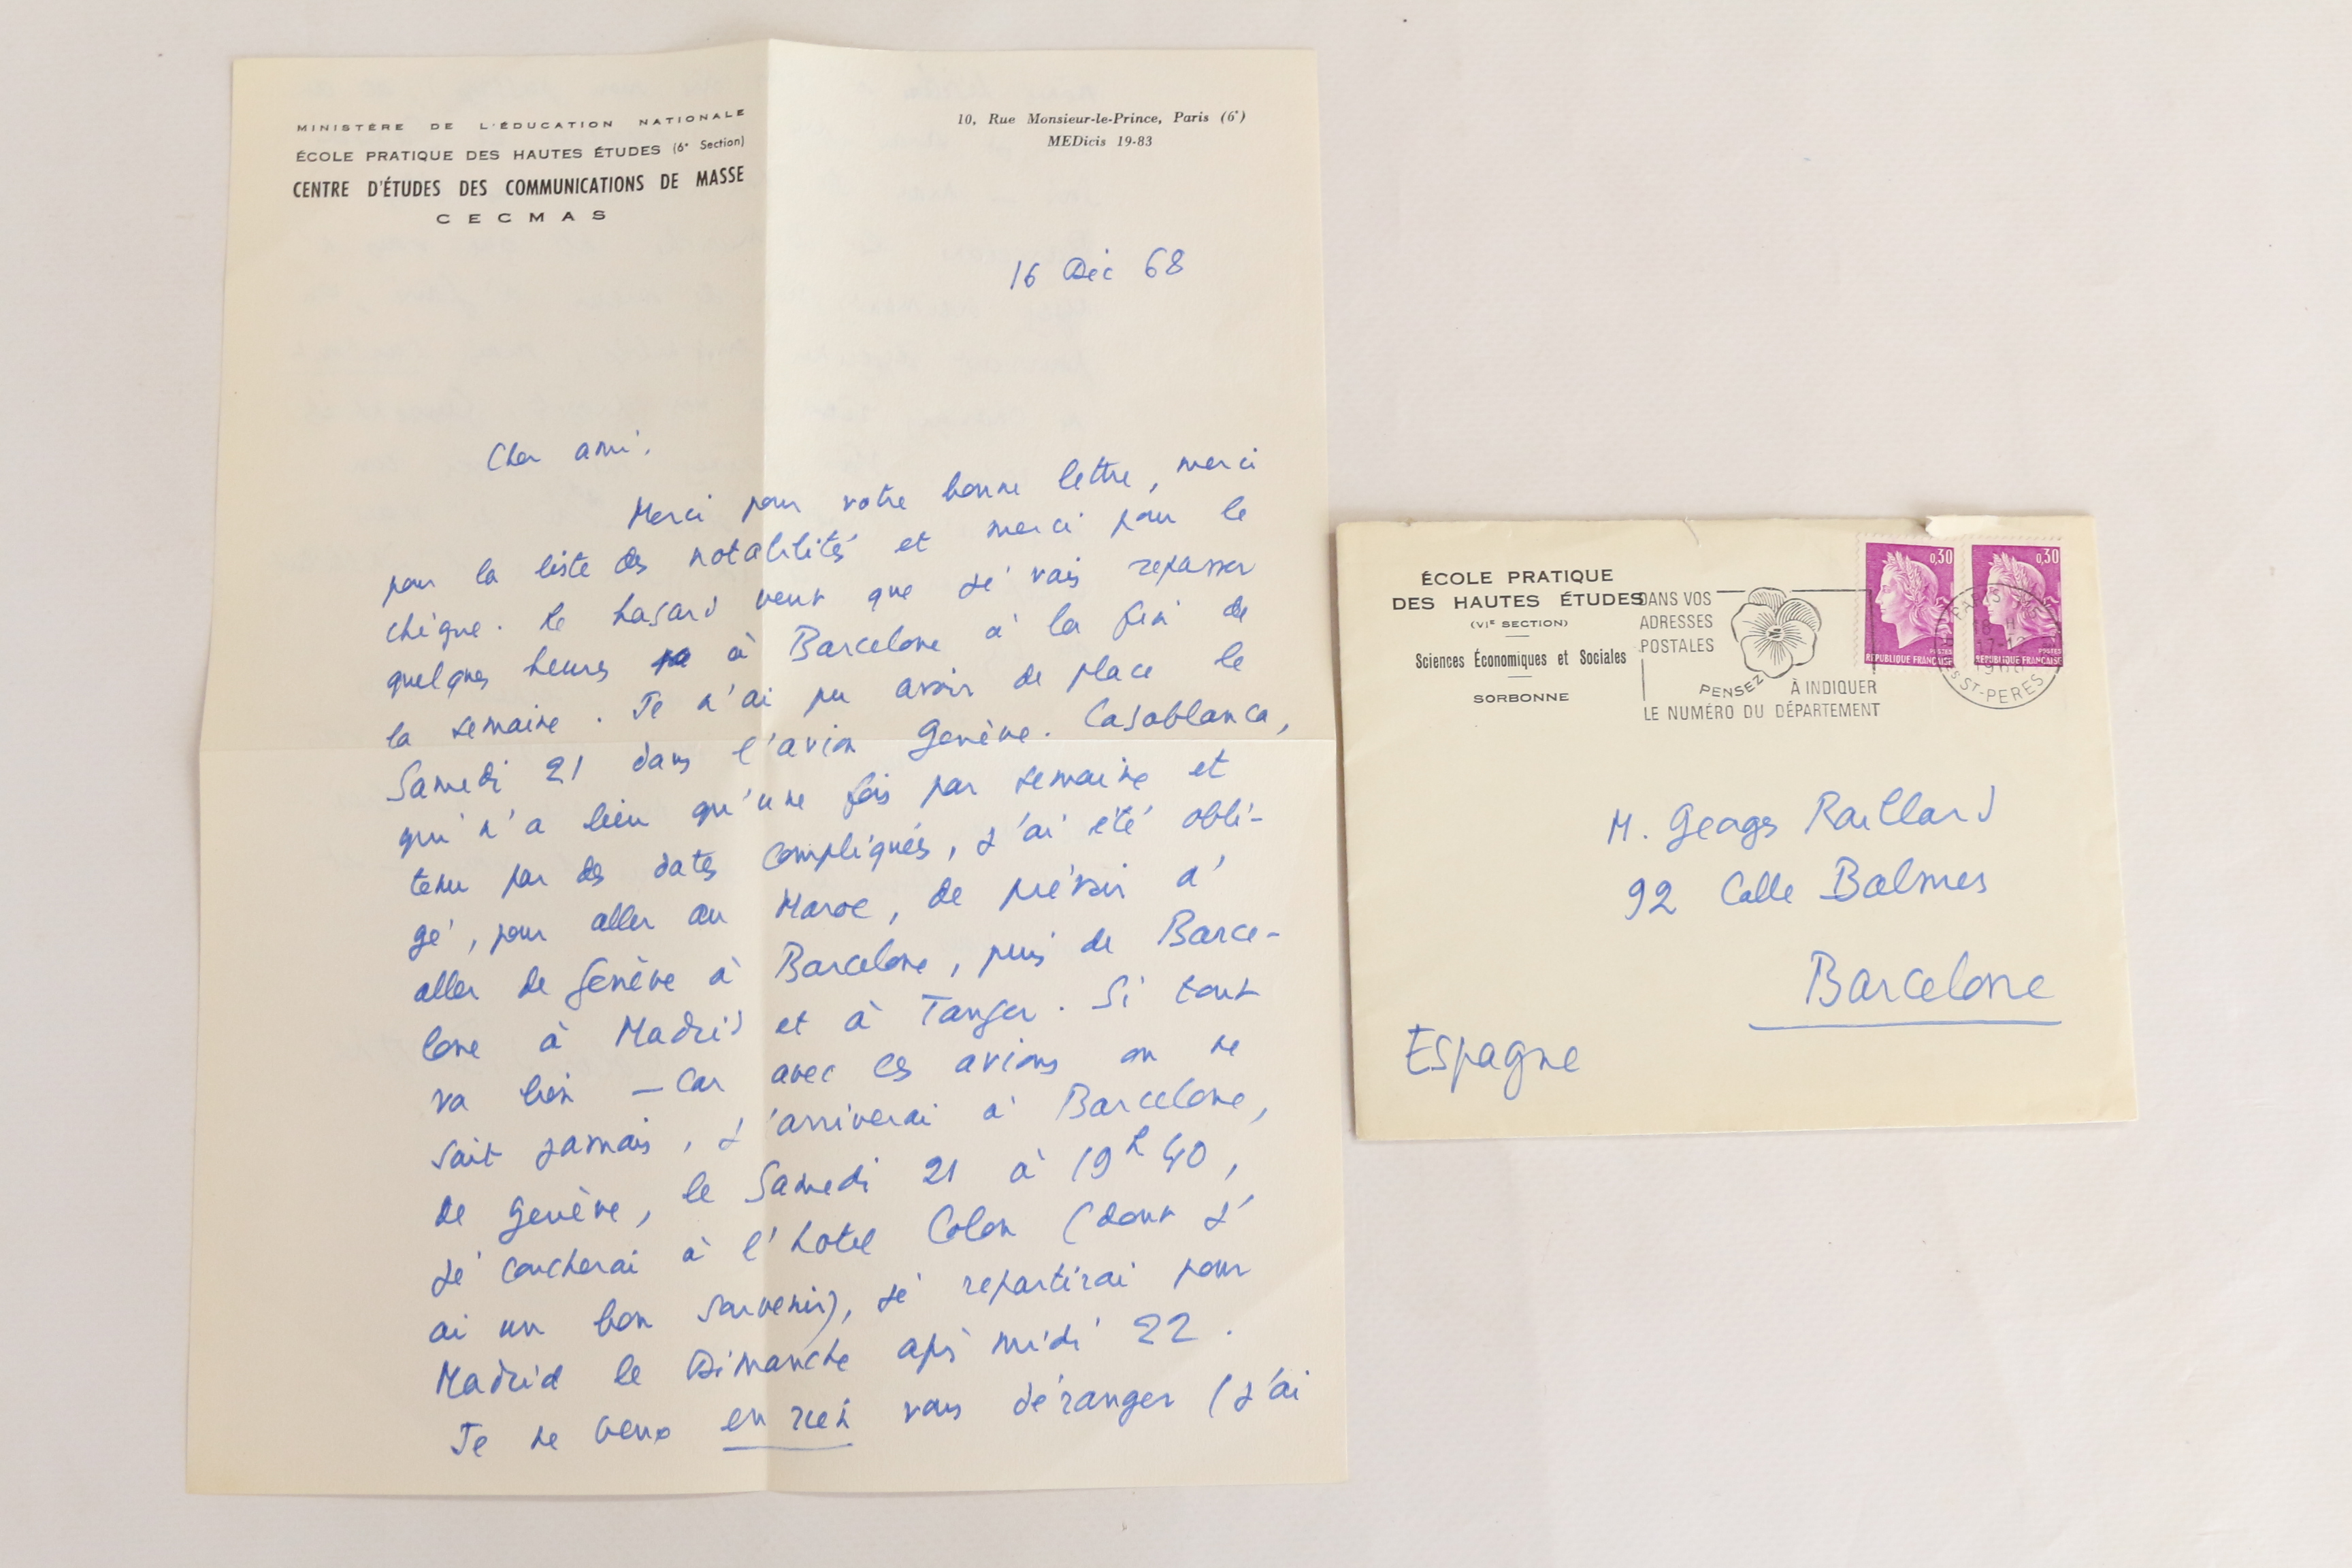 MINISTÈRE DE L'ÉDUCATION NATIONALE
ÉCOLE PRATIQUE DES HAUTES ÉTUDES (6e Section)
CENTRE D'ÉTUDES DES COMMUNICATIONS DE MASSE
CECMAS
10, Rue Monsieur-le-Prince, Paris (6e)
MEDicis 19-83
16 Déc 68
Cher ami,
Merci pour votre bonne lettre, merci
pour la liste des notabilités et merci pour le
chèque. Le hasard veut que je vais repasser
quelques heures à Barcelone à la fin de
la semaine. Je n'ai pu avoir de place le
Samedi 21 dans l'avion Genève-Casablanca,
qui n'a lieu qu'une fois par semaine et
tenu par des dates compliquées, j'ai été obli-
gé, pour aller au Maroc, de prévoir d'
aller de Genève à Barcelone, puis de Barce-
lone à Madrid et à Tanger. Si tout
va bien — car avec ces avions on ne
sait jamais, j'arriverai à Barcelone,
de Genève, le Samedi 21 à 19h40,
je coucherai à l'hotel Colon (dont j'
ai un bon souvenir), je repartirai pour
Madrid le Dimanche après midi 22.
Je ne veux en rien vous déranger (j'ai
ÉCOLE PRATIQUE
DES HAUTES ÉTUDES
(VIe SECTION)
Sciences Économiques et Sociales
SORBONNE
DANS VOS
ADRESSES
POSTALES
PENSEZ
À INDIQUER
LE NUMÉRO DU DÉPARTEMENT
0,30
POSTES
REPUBLIQUE FRANÇAISE
0,30
POSTES
REPUBLIQUE FRANÇAISE
PARIS
18 H
17-12
1968
ST-PERES
M. Georges Raillard
92 Calle Balmes
Barcelone
Espagne